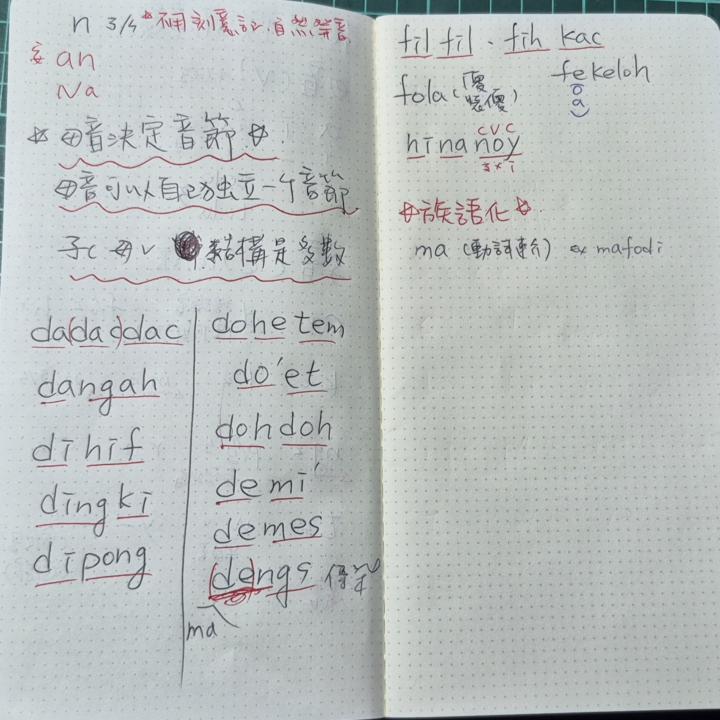 n 3/4 * 不用刻意記.自然築音
an
Na
☆母音決定音節☆.
母音可以自己獨立一个音節
子C 母V 結構是多數
da(da)ddac
dangah
dihif
dingki
dipong
dohetem
do'et
dohdoh
demi'
demes
(de)ngs
ma
filfil. fihkac
fola(傻傻)
fekeloh
o
a
CVC
hinanoy
☆族語化☆.
ma (動詞) ex mafodi